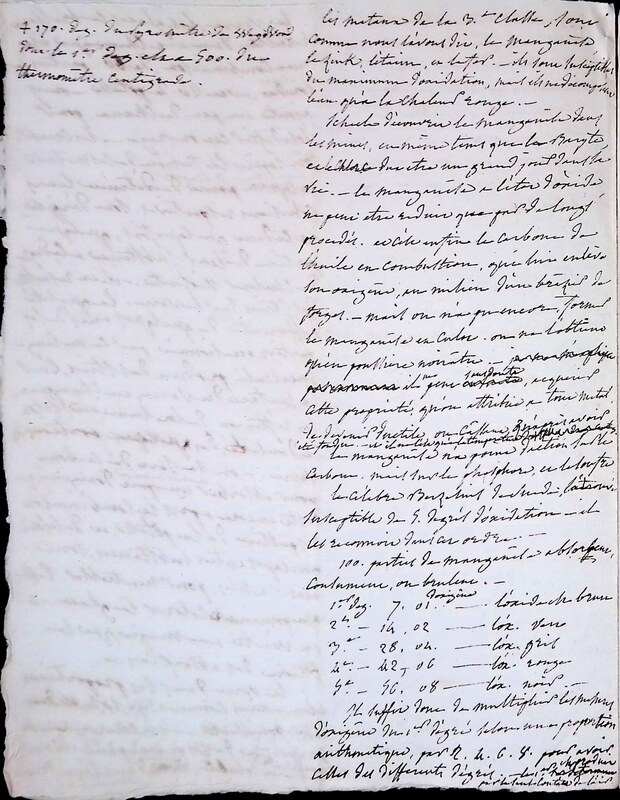 + 170. deg. du pyromètre de Wegdwod,
dont le 1er deg. est a 500. du
thermomètre centigrade.
les métaux de la 3.e Classe, sont
comme nous l'avons dit, le manganèse
le zink, l'étain, et le fer. - ils sont susceptibles
du maximum d'oxidation, mais ils ne décomposent
l'eau qu'a la chaleur rouge. -
Schéele découvrit le manganèse dans
les mines, en même tems que la Baryte
et le chlore
vie. - le manganèse a l'état d'oxide
ne peut etre reduit que par de longs
procédés. et cède enfin le carbone de
l'huile en combustion, que lui enlève
son oxigène, au milieu d'un brasier de
forge. - mais on n'a pu encore former
le manganèse en culot. on ne l'obtient
qu'en poussière noirâtre. -
il peut sans doute, acquérir
cette propriété, qu'on attribue a tout métal
de devenir ductile, ou cassant
le manganèse n'a point d'action sur le
Carbone. mais sur le phosphore, et le soufre
le célèbre Berzelius de Suède, l'a trouvé
susceptible de 5. degrés d'oxidation - et
les reconnoit dans cet ordre. -
100. parties de manganèse absorbent,
consument, ou brulent. -
1er deg. 7. 01 d'oxigène - l'oxide est brun
2e - 14. 02 - l'ox. vert
3.e - 28. 04. - l'ox. gris
4e. - 42. 06 - l'ox. rouge
5e. - 56. 08 - l'ox. noir. -
Il suffit donc de multiplier les mesures
d'oxigène du 1er degré selon une proportion
arithmetique, par 2. 4. 6. 8. pour avoir
celles des differents degrés